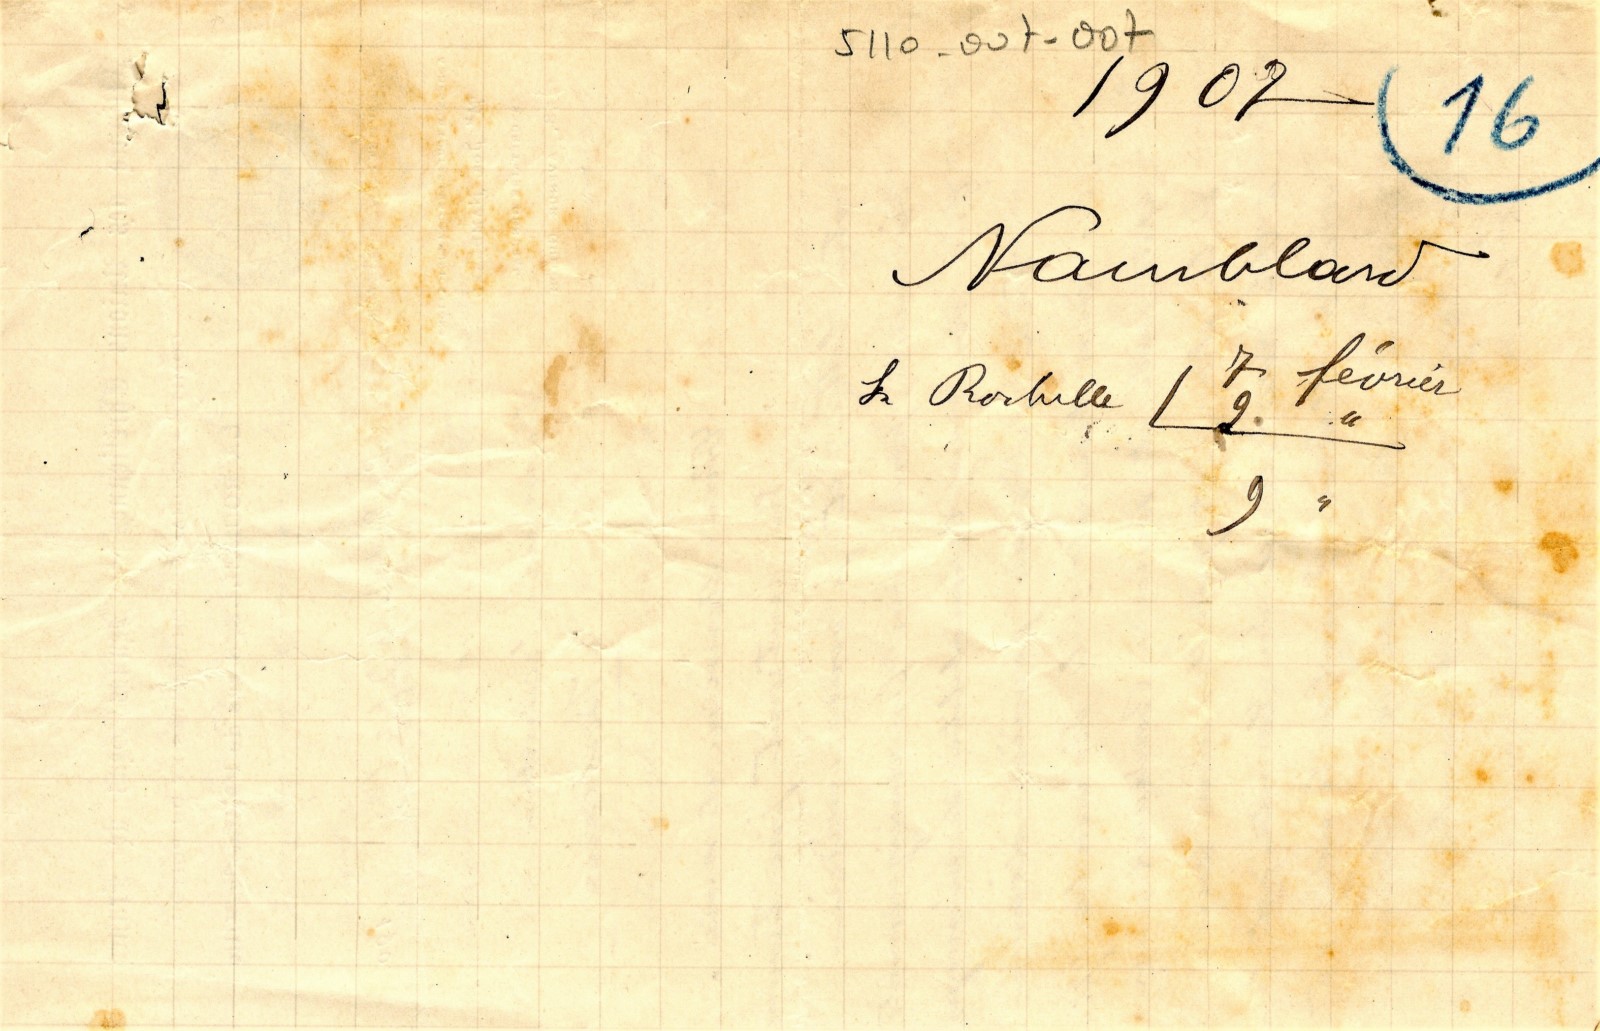 5110-007-007
1907 16
Namblard
La Rochelle 7 février
2. "
9 "